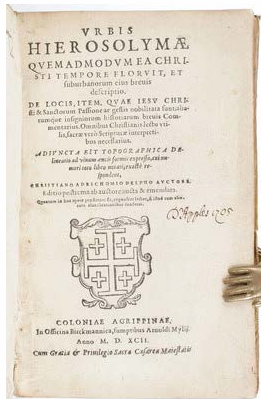 VRBIS
HIEROSOLYMÆ
QVEMADMODVM EA CHRI-
STI TEMPORE FLORVIT, ET
suburbanorum eius breuis
descriptio.
DE LOCIS, ITEM, QVAE IESV CHRI-
sti & Sanctorum Passione ac gestis nobilitata sunt: alia-
rumque insigniorum historiarum breuis Com-
mentarius. Omnibus Christianis lectu vti-
lis, sacræ verò Scripturæ interpreti-
bus necessarius.
ADIVNCTA EST TOPOGRAPHICA DE-
lineatio ad viuum æneis formis expressa, cui nu-
meri toto libro notati, exactè re-
spondent,
CHRISTIANO ADRICHOMIO DELPHO AVCTORE.
Editio postrema ab auctore aucta & emendata.
D'Apples 1705
COLONIAE AGRIPPINAE,
In Officina Birckmannica, sumptibus Arnoldi Mylij.
Anno M. D. XCII.
Cum Gratia & Priuilegio Sacræ Cæsareæ Maiestatis